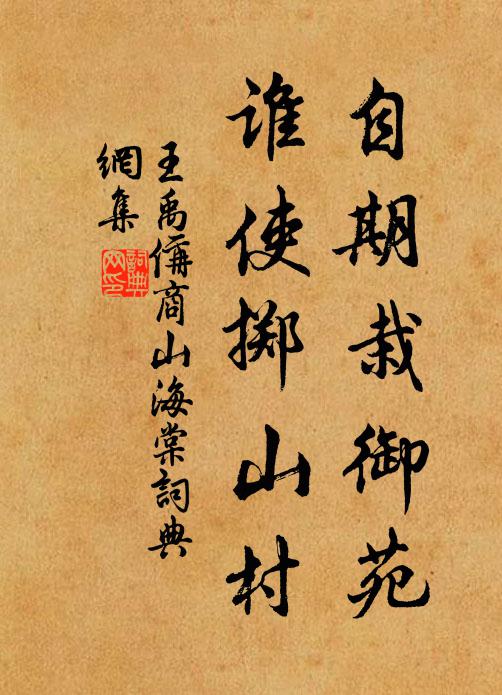 自期栽御苑
谁使掷山村
王禹偁商山海棠詞典
網集
詞典
网印